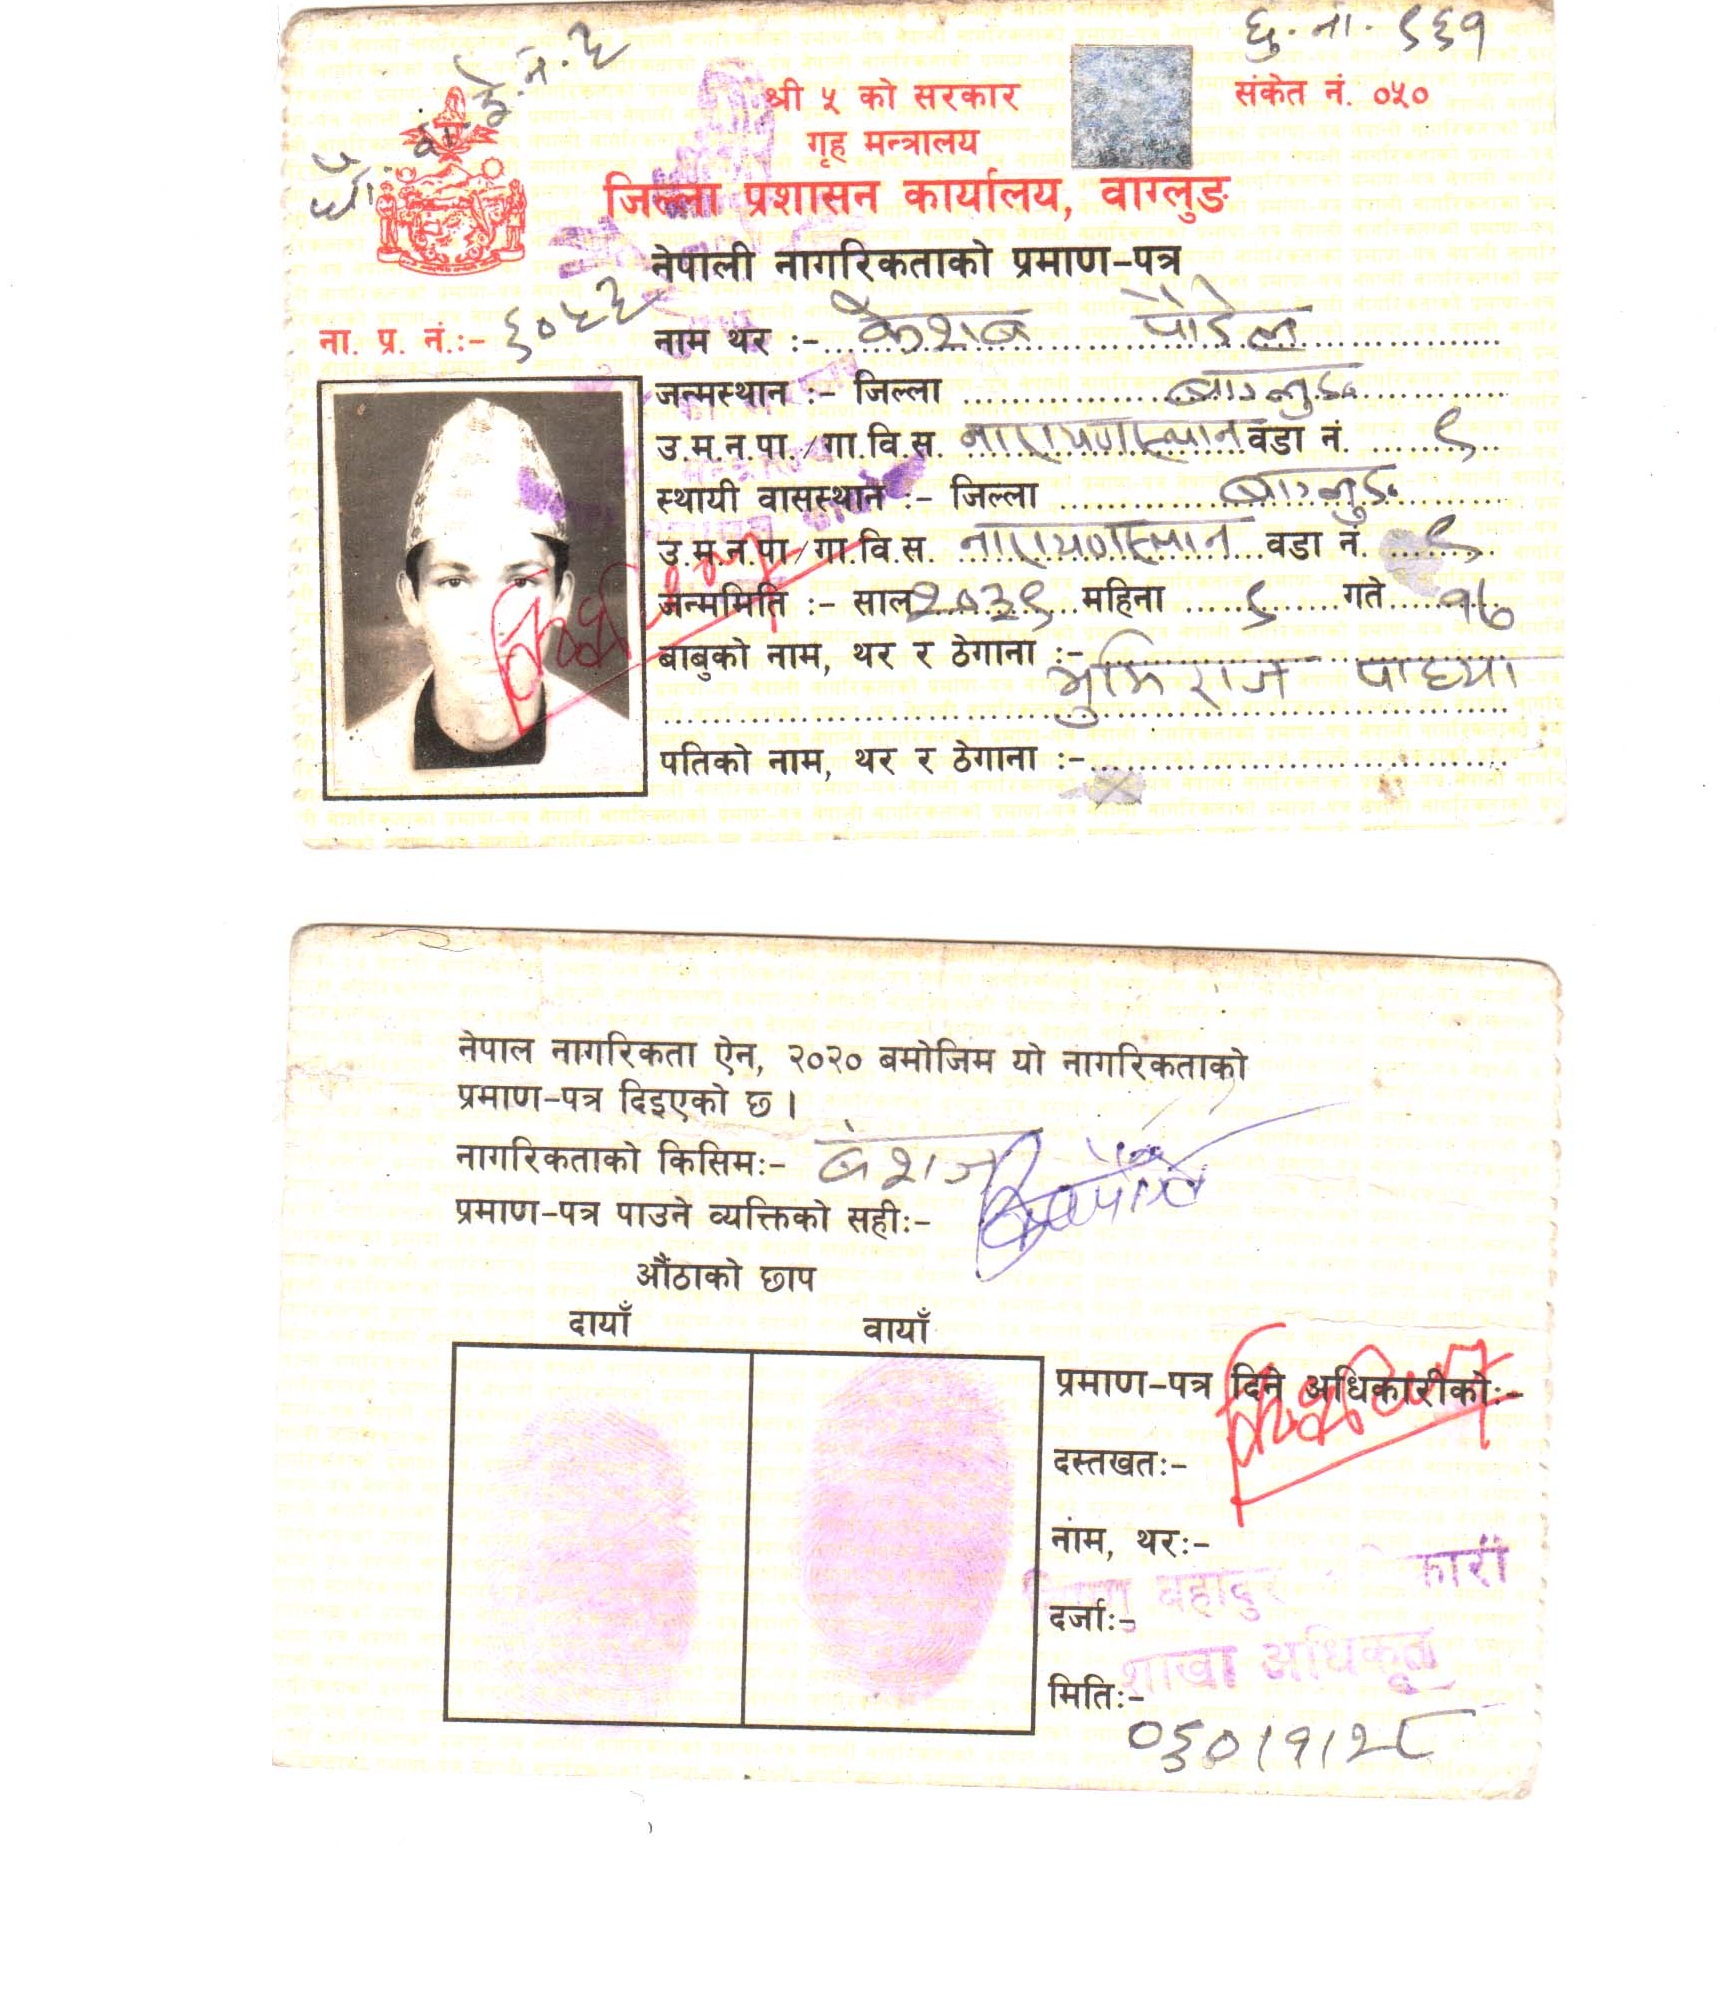 छु. ना. ९६१
श्री ५ को सरकार
संकेत नं. ०५०
गृह मन्त्रालय
जिल्ला प्रशासन कार्यालय, वाग्लुङ
नेपाली नागरिकताको प्रमाण-पत्र
ना. प्र. नं.:-
नाम थर :- केशब पौडेल
जन्मस्थान :- जिल्ला बाग्लुङ
उ.म.न.पा./गा.वि.स. नारायणस्थान वडा नं. ९
स्थायी वासस्थान :- जिल्ला बाग्लुङ
उ.म.न.पा/गा.वि.स. नारायणस्थान वडा नं. ९
जन्ममिति :- साल २०३९ महिना ९ गते १७
बाबुको नाम, थर र ठेगाना :-
भुमिराज पाध्या
पतिको नाम, थर र ठेगाना :-
नेपाल नागरिकता ऐन, २०२० बमोजिम यो नागरिकताको
प्रमाण-पत्र दिइएको छ।
नागरिकताको किसिमः- बंशज
प्रमाण-पत्र पाउने व्यक्तिको सहीः-
औंठाको छाप
दायाँ वायाँ
प्रमाण-पत्र दिने अधिकारीकोः-
दस्तखतः-
नाम, थरः-
बहादुर
दर्जाः-
शाखा अधिकृत
मितिः-
०६०।१।२८